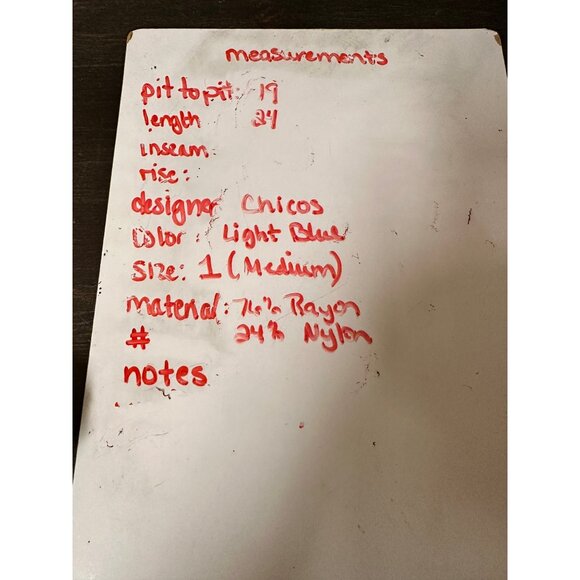 measurements
pit to pit: 19
length 24
inseam
rise:
designer Chicos
color: Light Blue
Size: 1 (Medium)
Material: 76% Rayon
# 24% Nylon
notes